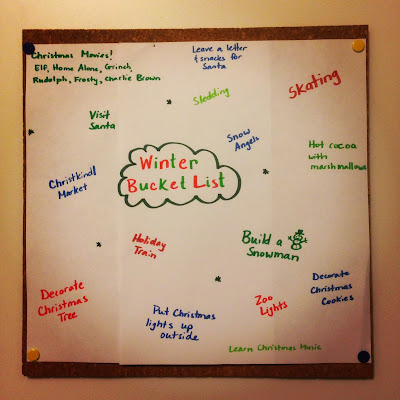 Christmas Movies!
Elf, Home Alone, Grinch,
Rudolph, Frosty, Charlie Brown
Leave a letter
& snacks for
Santa
Sledding
Skating
Visit
Santa
Snow
Angels
Hot cocoa
with
marshmallows
Christkindl
Market
Winter
Bucket List
Holiday
Train
Build a
Snowman
Decorate
Christmas
Tree
Put Christmas
lights up
outside
Zoo
Lights
Decorate
Christmas
Cookies
Learn Christmas Music